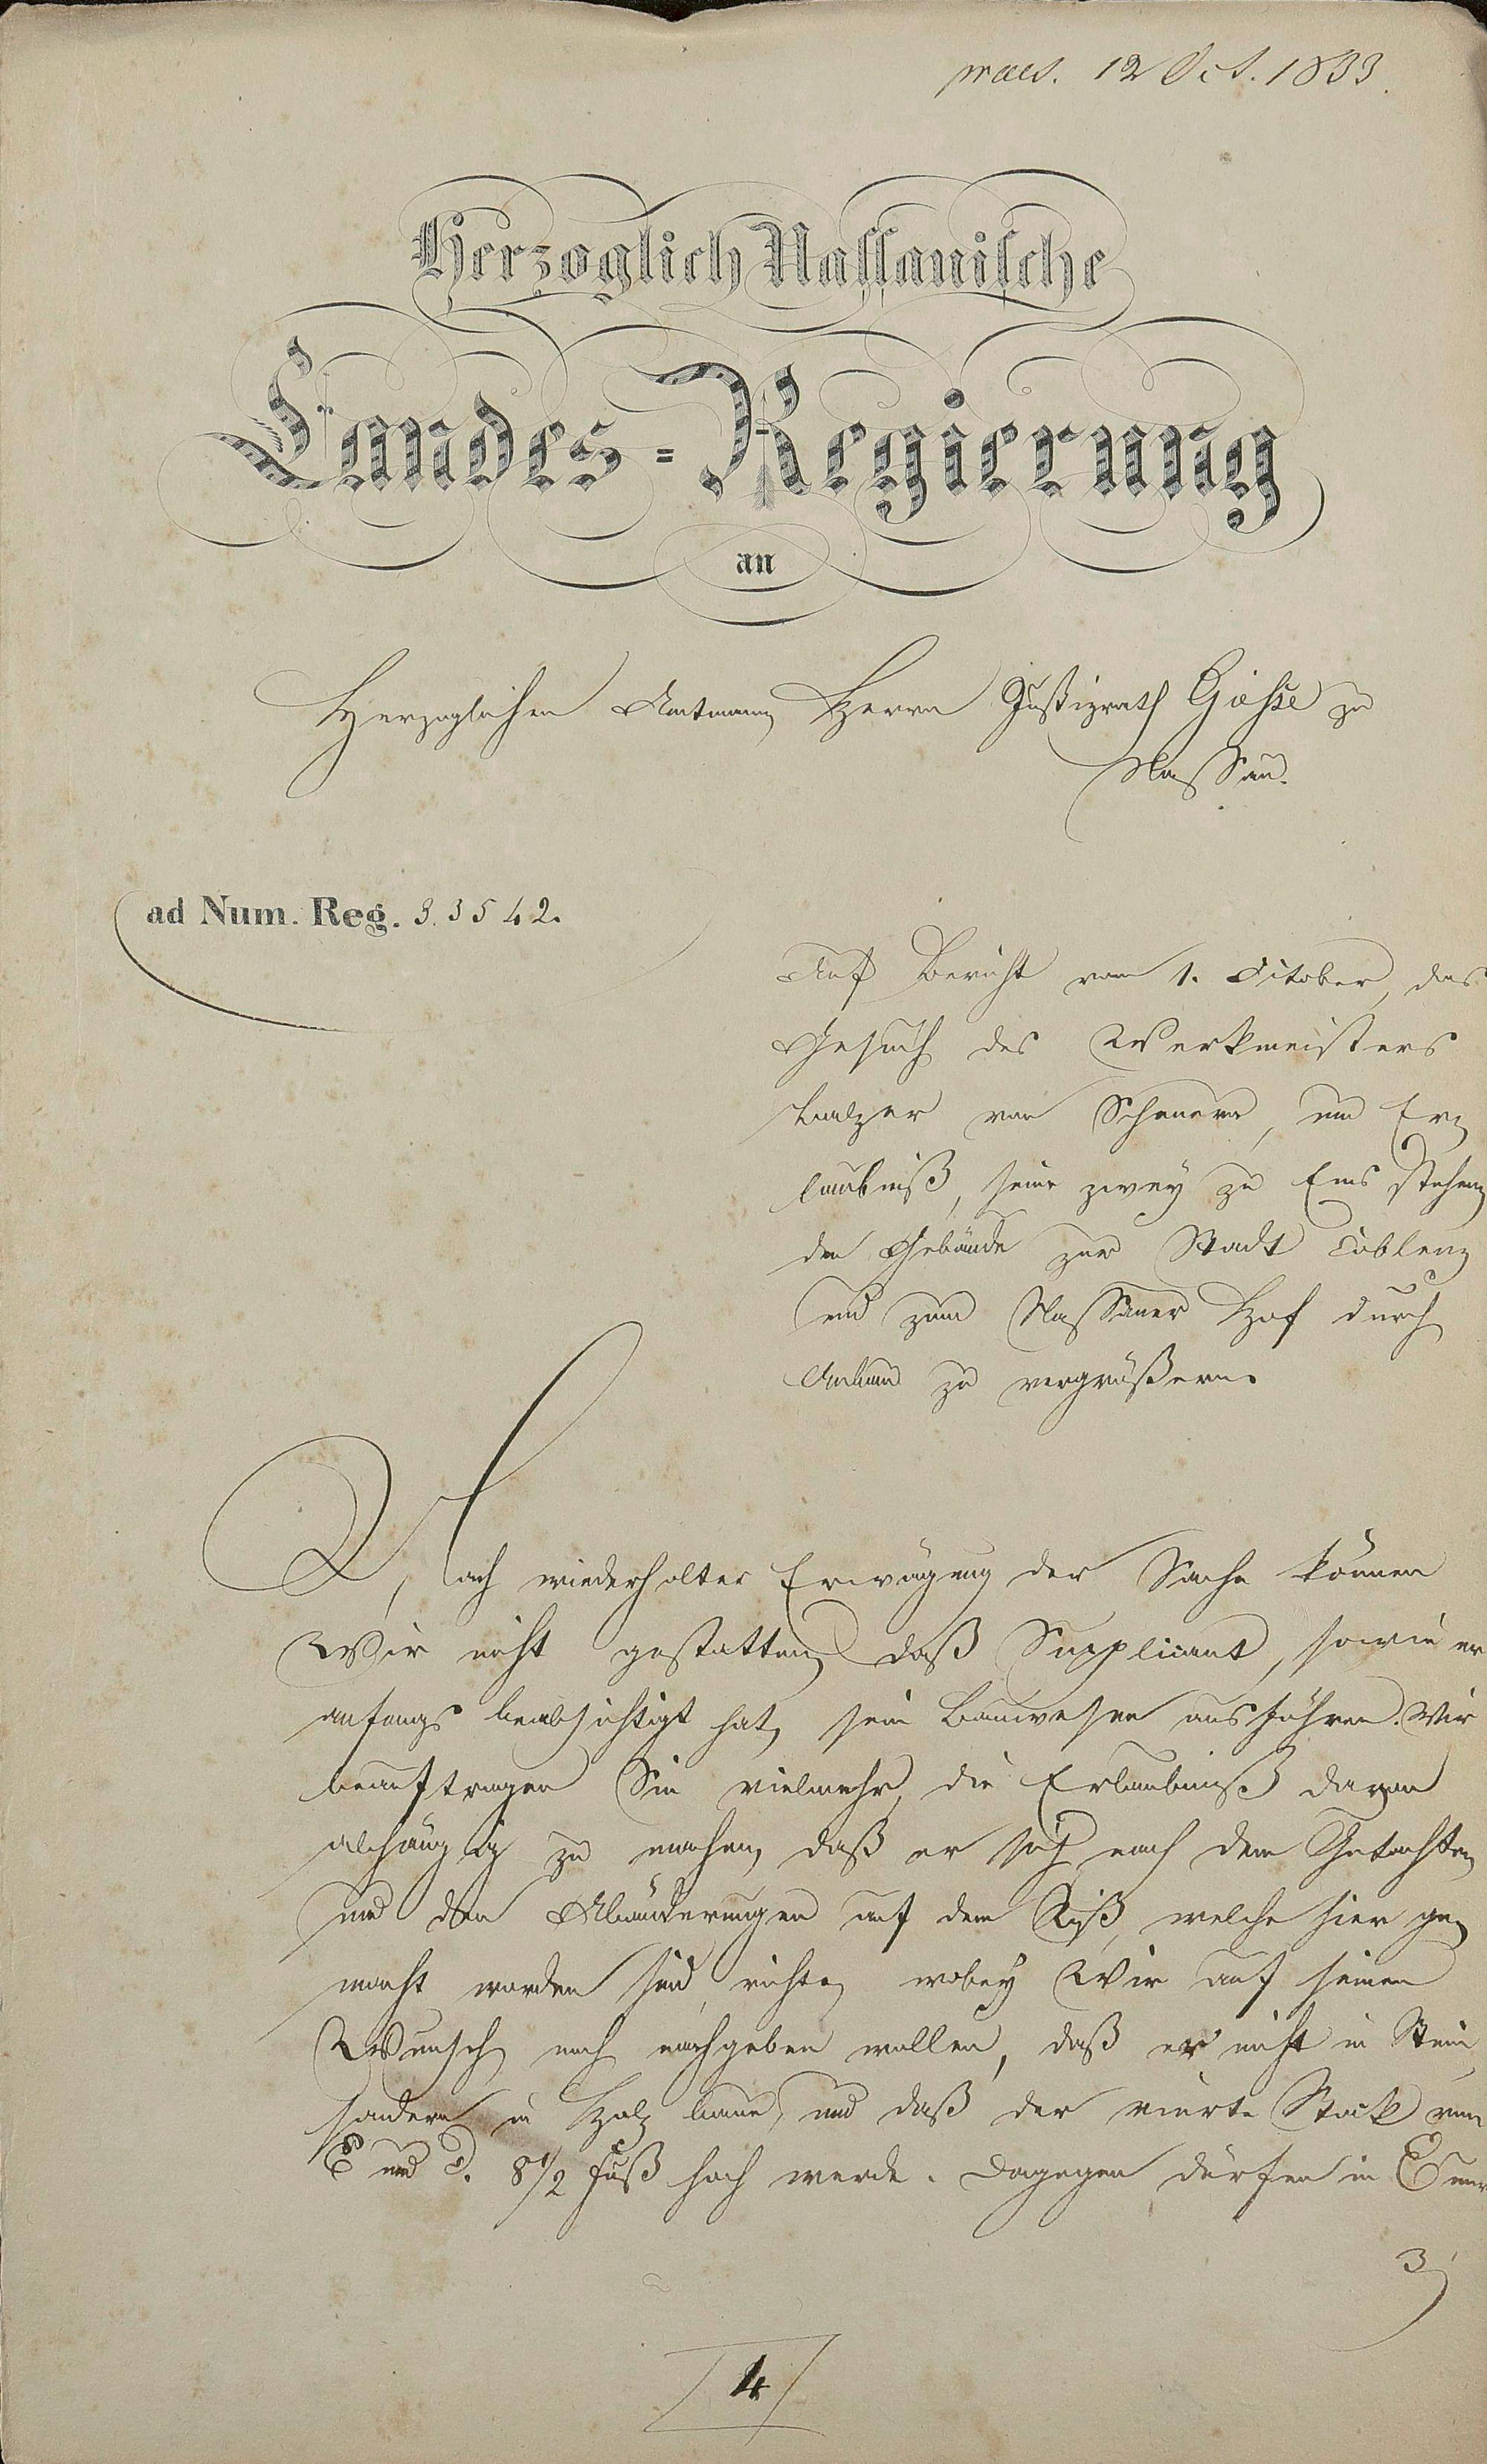 praes. 12 Oct. 1833.
Herzoglich Nassauische
Landes-Regierung
an
Herzoglichen Amtmann Herrn Justizrath Giesse zu
Nassau.
ad Num. Reg. 33542.
Auf Bericht vom 1. October, das
Gesuch des Werkmeisters
Balzer von Scheuern, um Er-
laubniß, seine zwey zu Ems stehen-
den Gebäude zur Stadt Coblenz
und zum Nassauer Hof durch
Anbau zu vergrößern.
Nach wiederholter Erwägung der Sache können
Wir nicht gestatten, daß Supplicant, sowie er
anfangs beabsichtigt hat, sein Bauwesen ausführe. Wir
beauftragen Sie vielmehr, die Erlaubniß davon
abhängig zu machen, daß er sich nach dem Gutachten
und den Abänderungen auf dem Riß, welche hier ge-
macht worden sind, richte, wobey Wir auf seinen
Wunsch noch nachgeben wollen, daß er nicht in Stein
sondern in Holz baue, und daß der vierte Stock von
C und D. 8 1/2 Fuß hoch werde. Dagegen dürfen in C nur
3
4